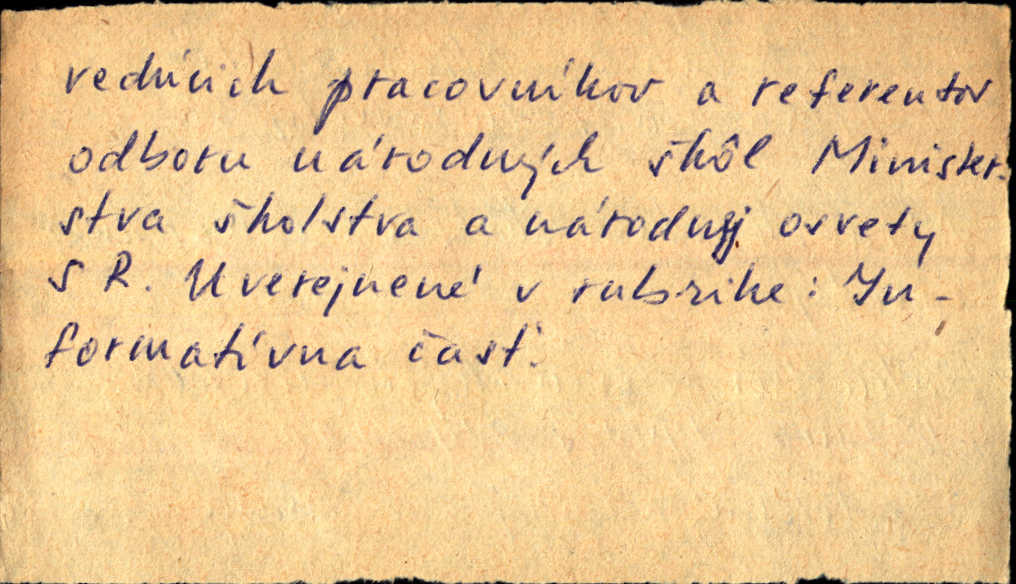 vedúcich pracovníkov a referentov
odboru národných škôl Minister-
stva školstva a národnej osvety
SR. Uverejnené v rubrike: In-
formatívna časť.